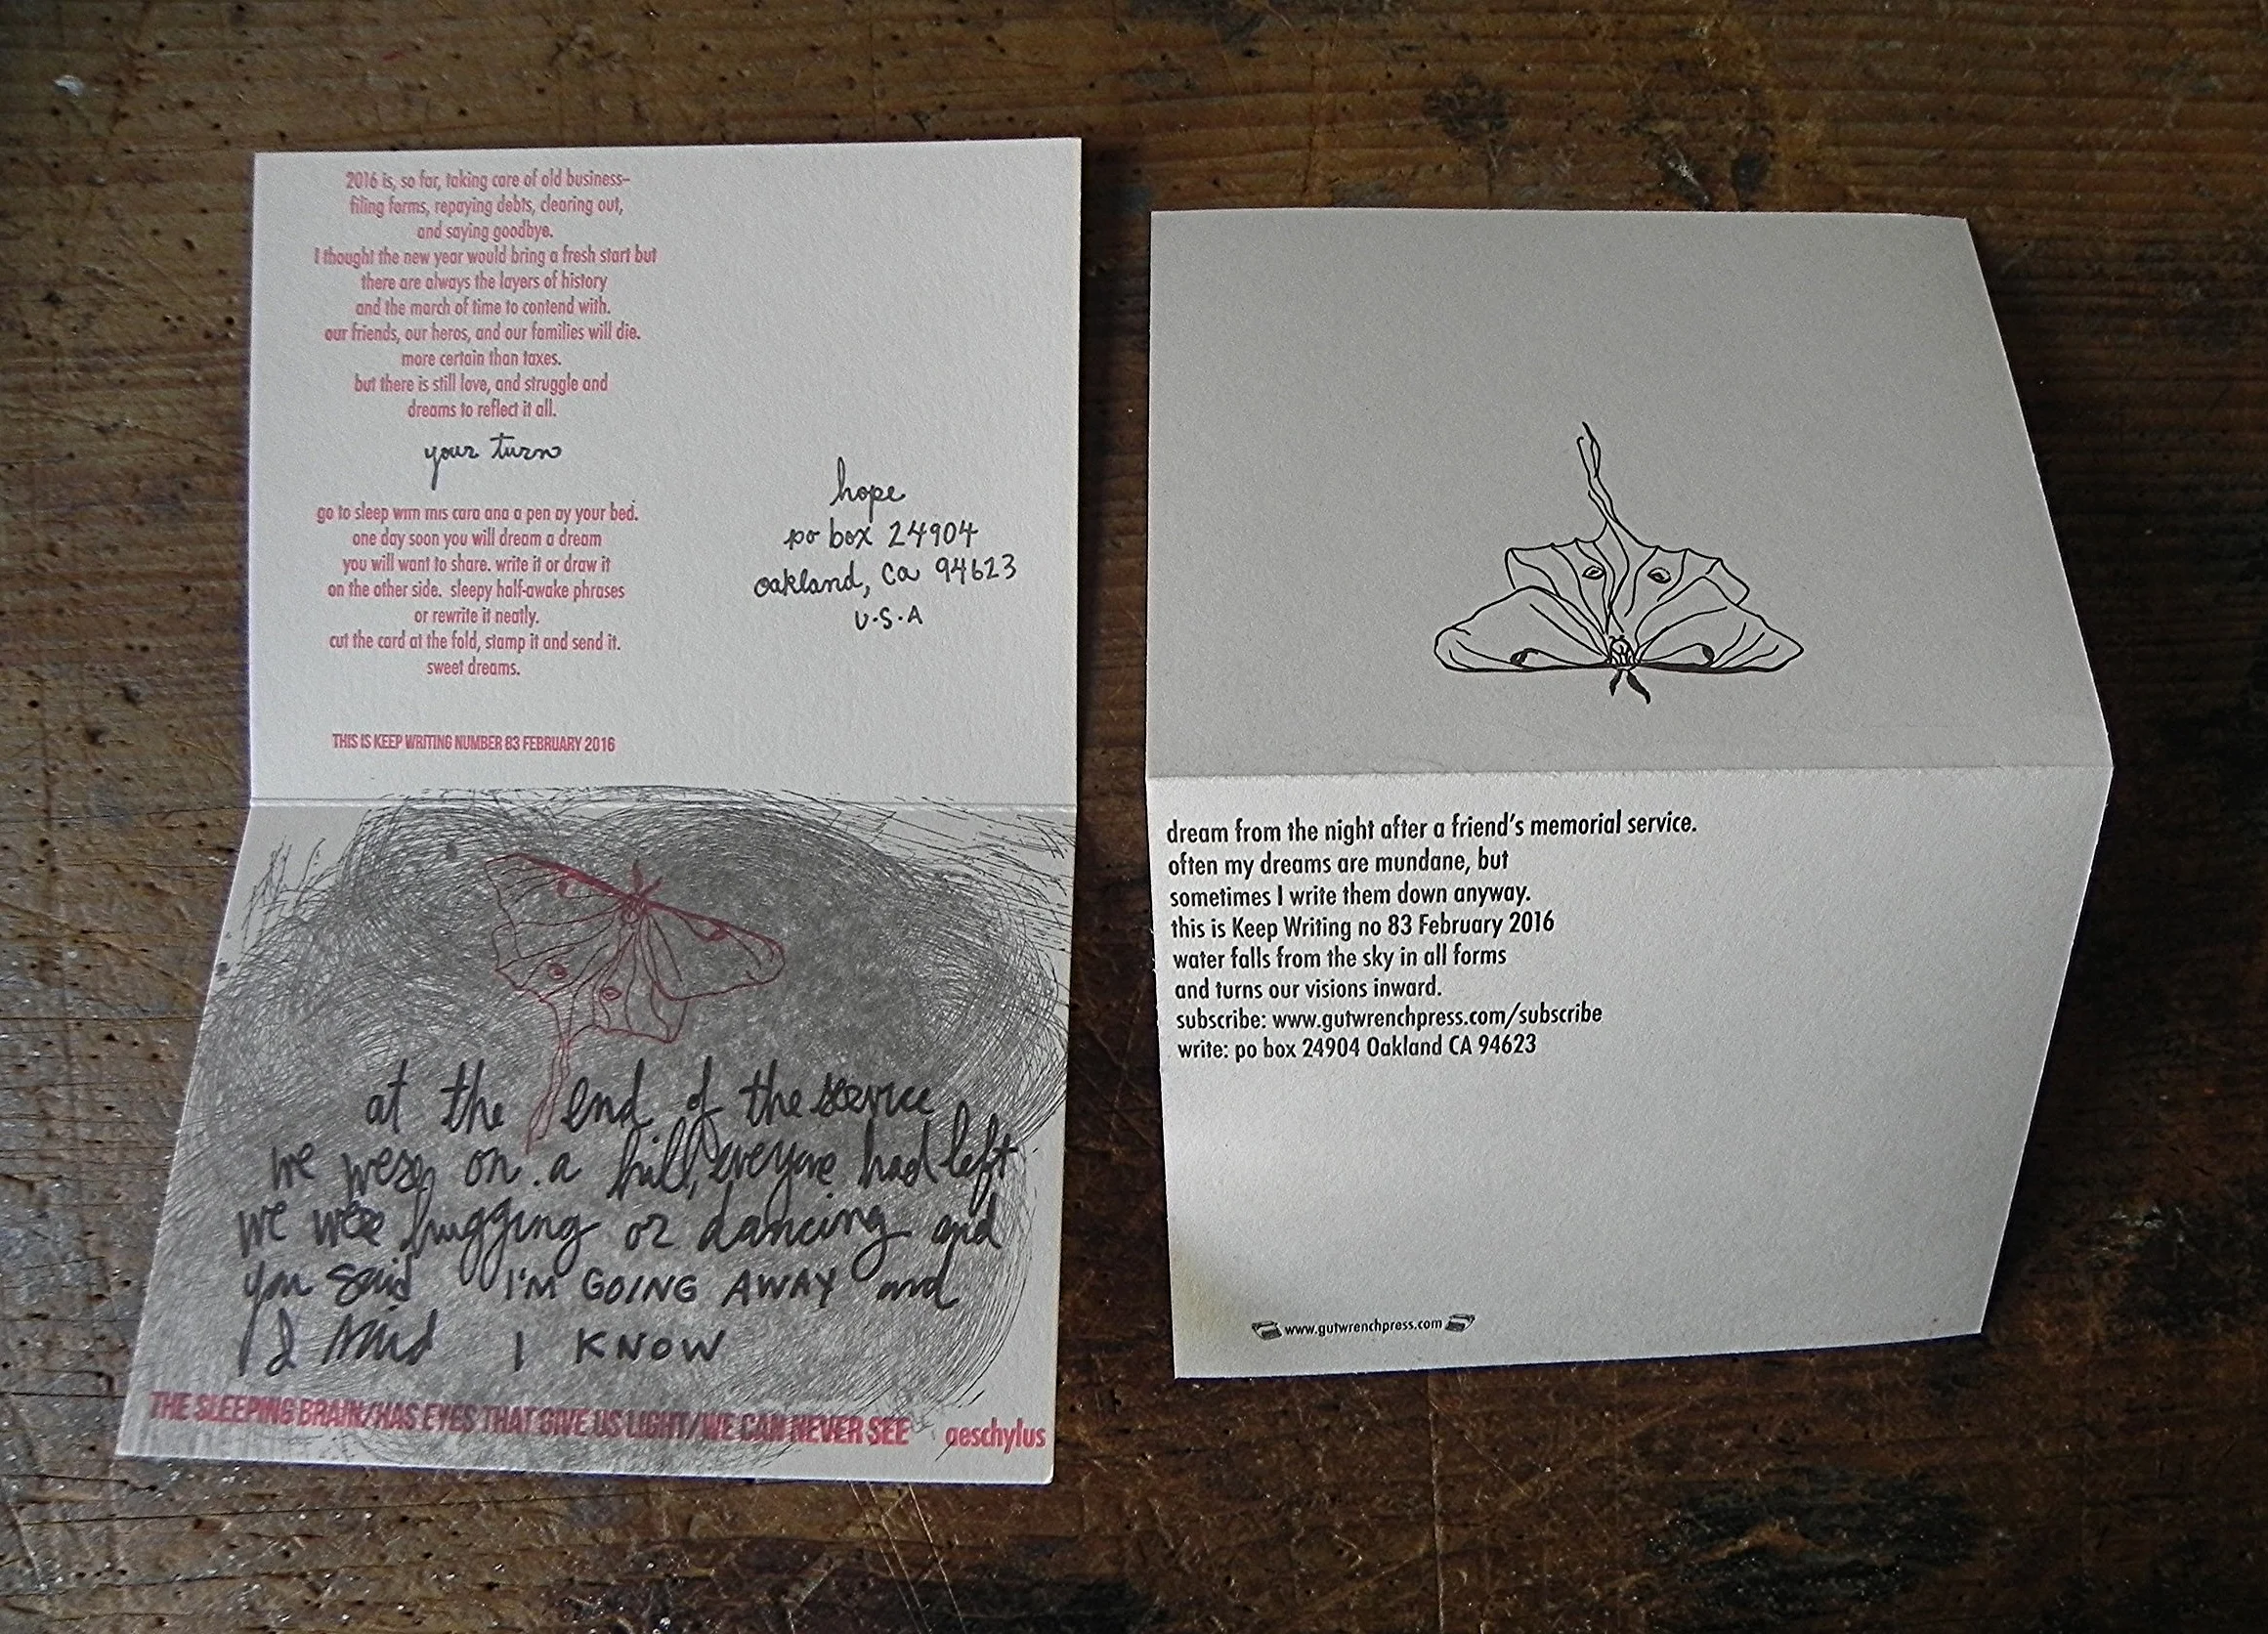 2016 is, so far, taking care of old business–
filing forms, repaying debts, clearing out,
and saying goodbye.
I thought the new year would bring a fresh start but
there are always the layers of history
and the march of time to contend with.
our friends, our heros, and our families will die.
more certain than taxes.
but there is still love, and struggle and
dreams to reflect it all.
your turn
go to sleep with this card and a pen by your bed.
one day soon you will dream a dream
you will want to share. write it or draw it
on the other side. sleepy half-awake phrases
or rewrite it neatly.
cut the card at the fold, stamp it and send it.
sweet dreams.
THIS IS KEEP WRITING NUMBER 83 FEBRUARY 2016
hope
po box 24904
oakland, ca 94623
U.S.A
at the end of the service
we were on a hill, everyone had left
we were hugging or dancing and
you said I'M GOING AWAY and
I said I KNOW
THE SLEEPING BRAIN/HAS EYES THAT GIVE US LIGHT/WE CAN NEVER SEE aeschylus
dream from the night after a friend's memorial service.
often my dreams are mundane, but
sometimes I write them down anyway.
this is Keep Writing no 83 February 2016
water falls from the sky in all forms
and turns our visions inward.
subscribe: www.gutwrenchpress.com/subscribe
write: po box 24904 Oakland CA 94623
www.gutwrenchpress.com